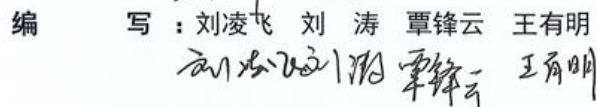 编 写：刘凌飞 刘 涛 覃锋云 王有明
刘凌飞 刘涛 覃锋云 王有明